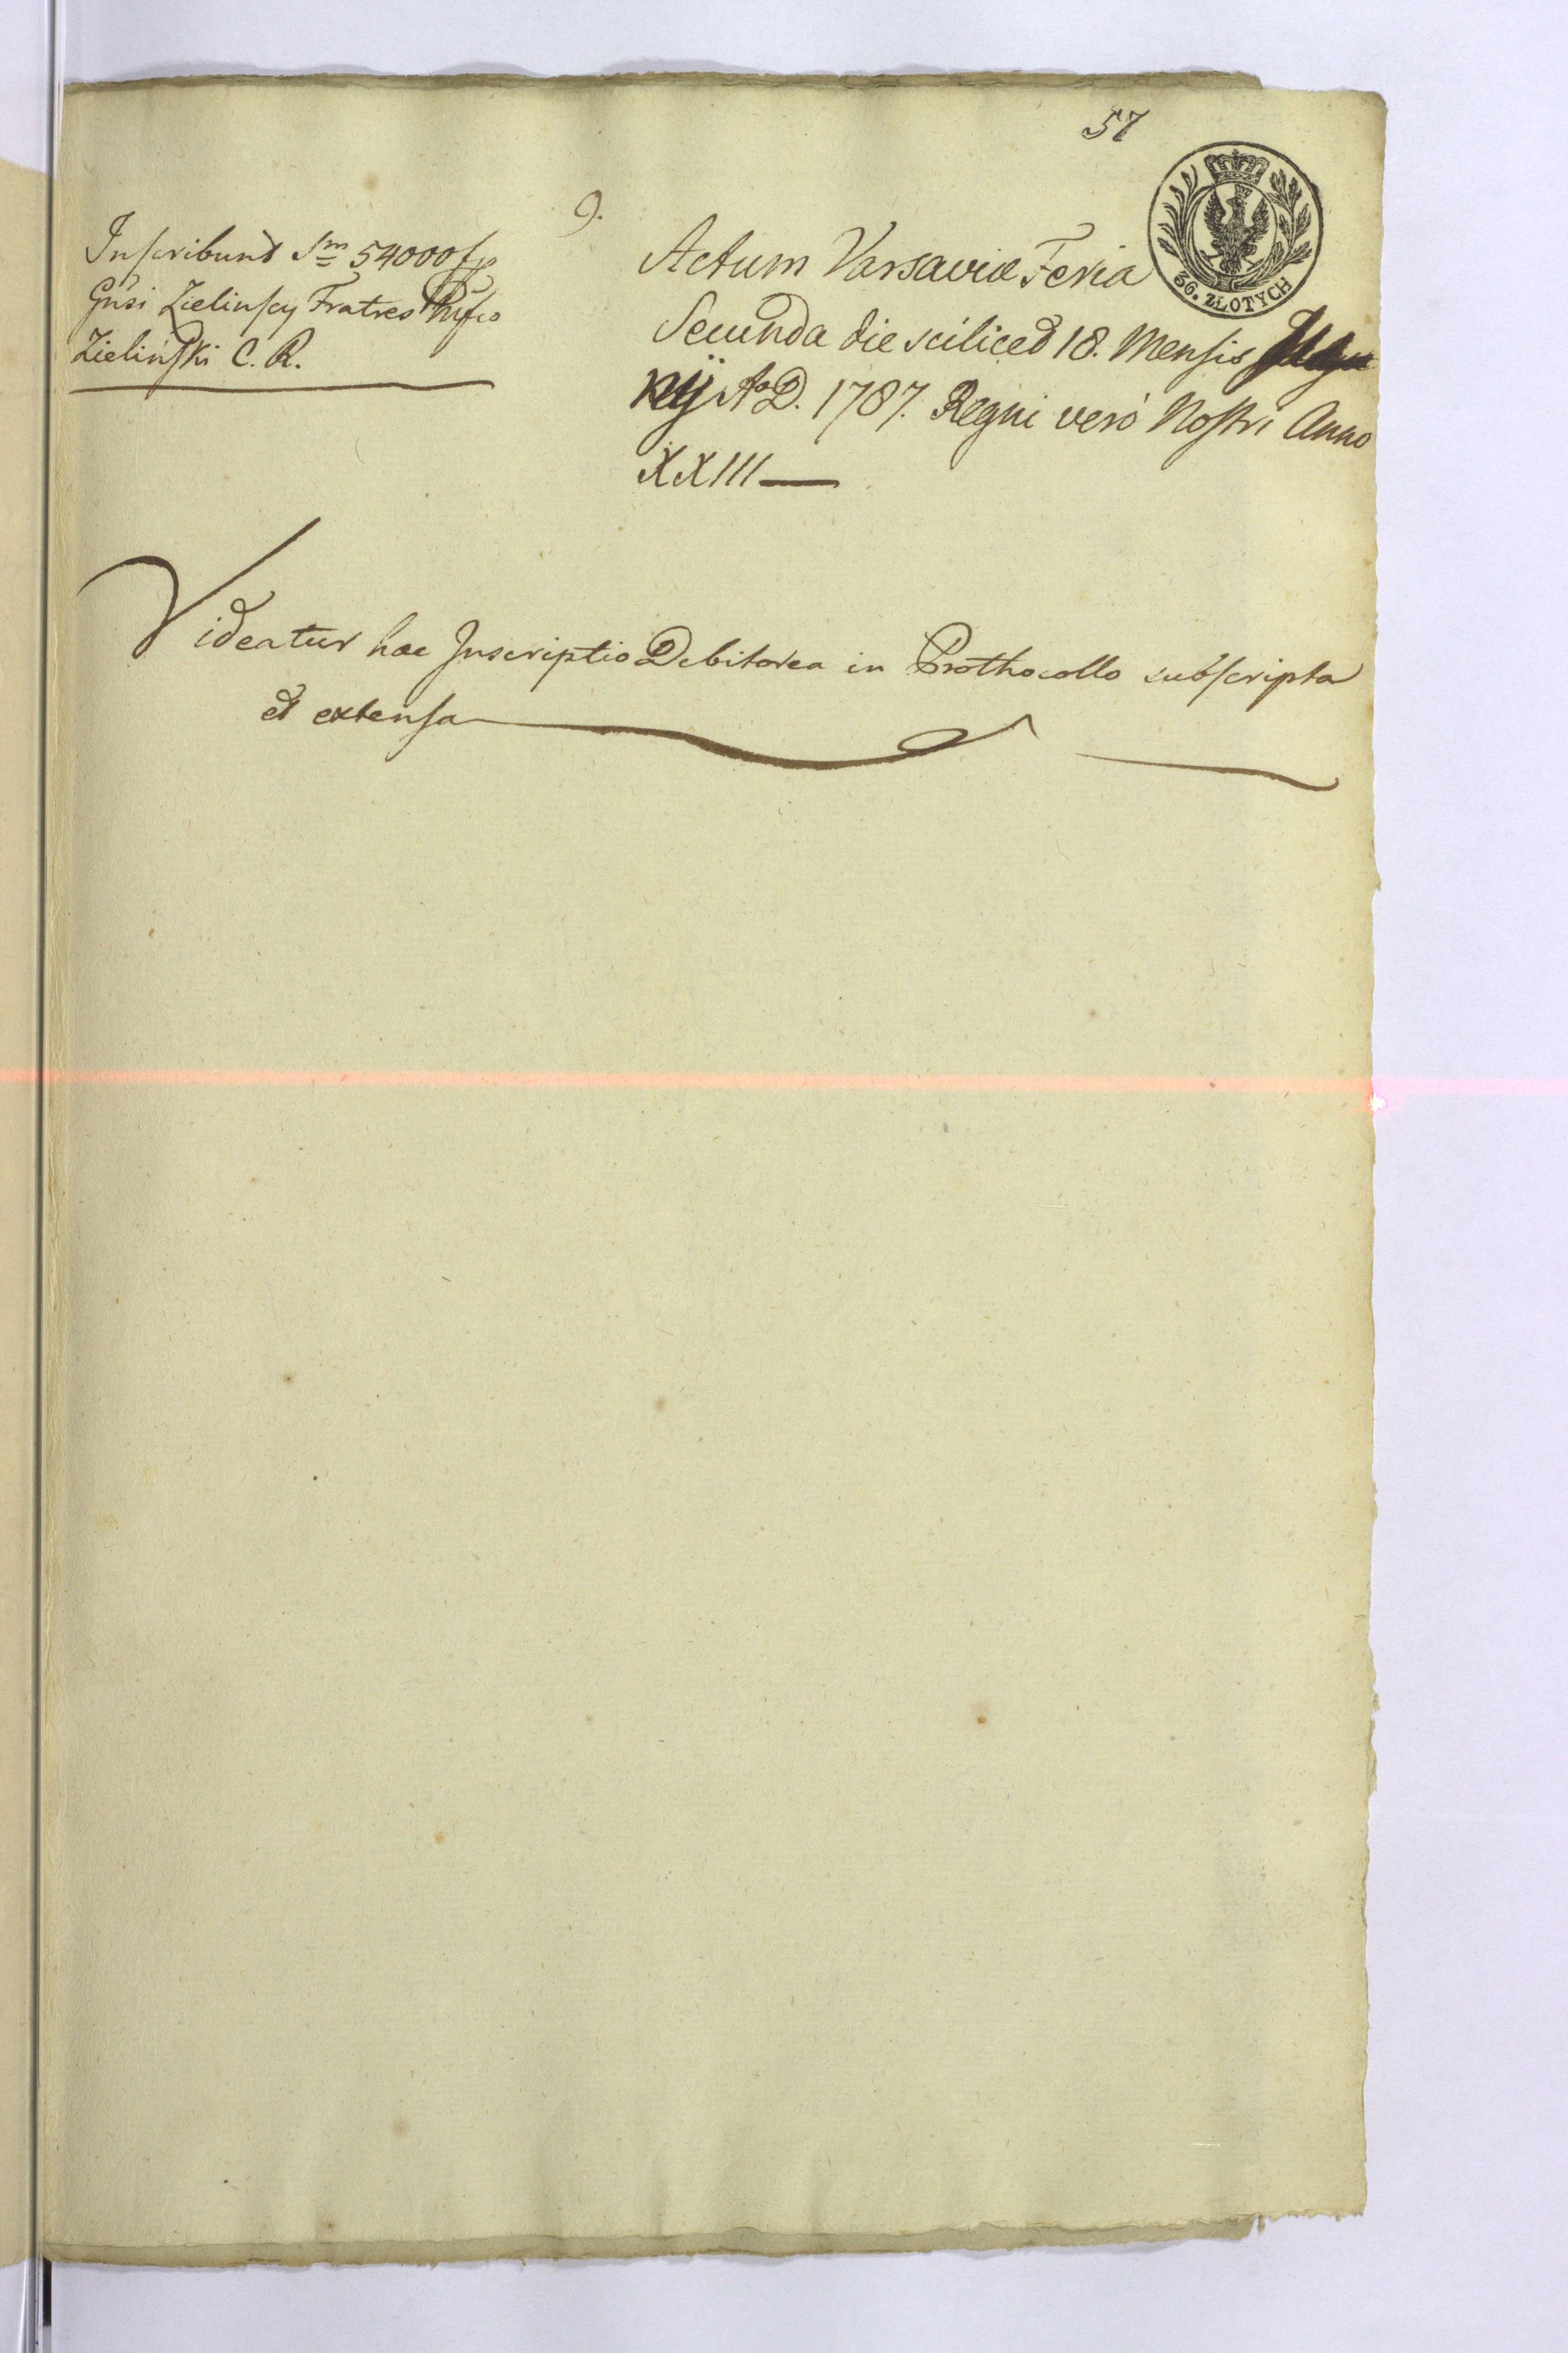 57
9.
Inscribunt Sm 54000 fp
Gnsi Zielinscy Fratres Mfco
Zieliński C. R.
Actum Varsaviæ Feria
Secunda die scilicet 18. Mensis Ju
nij Ao D. 1787. Regni verò Nostri Anno
XXIII
36. ZŁOTYCH
Videatur hæc Inscriptio Debitorea in Prothocollo subscripta
et extensa